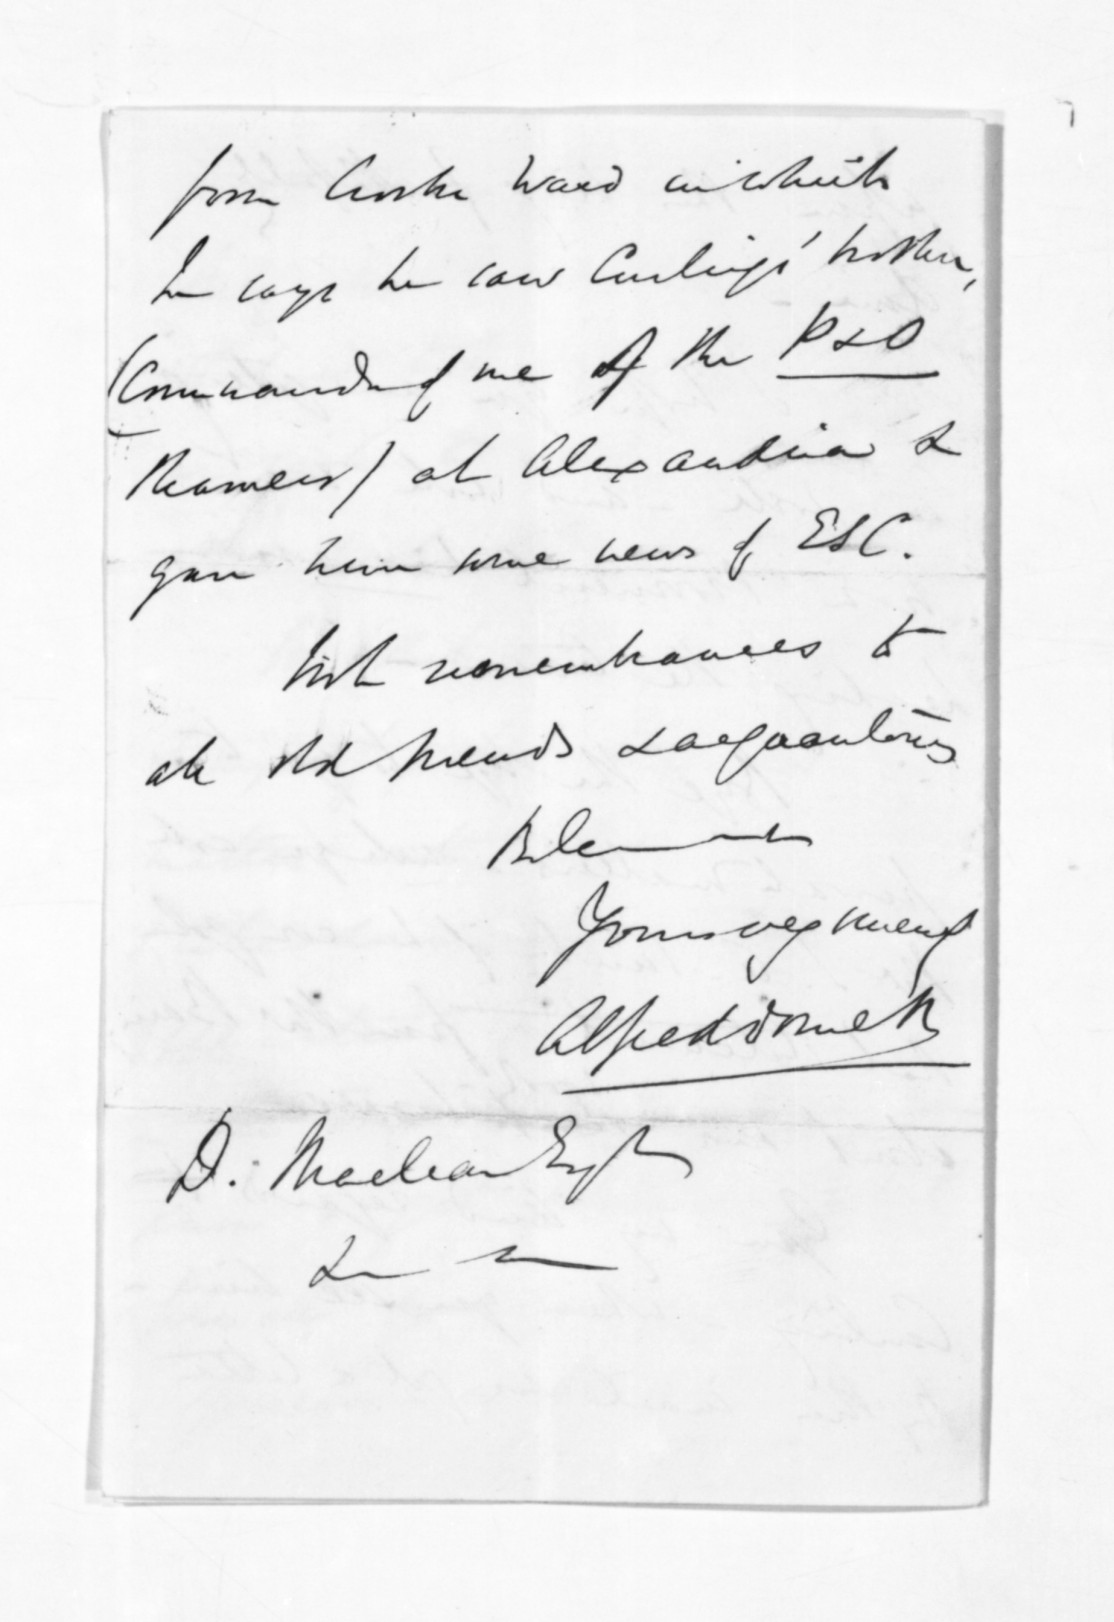 from Crosbie Ward in which
he says he saw Curling's brother,
(Commander of one of the P & O
steamers) at Alexandria &
gave him some news of ESC.
With remembrances to
all old friends & acquaintances
Believe me
Yours very sincerely
Alfred Domett
D. Maclean Esqre
&c &c